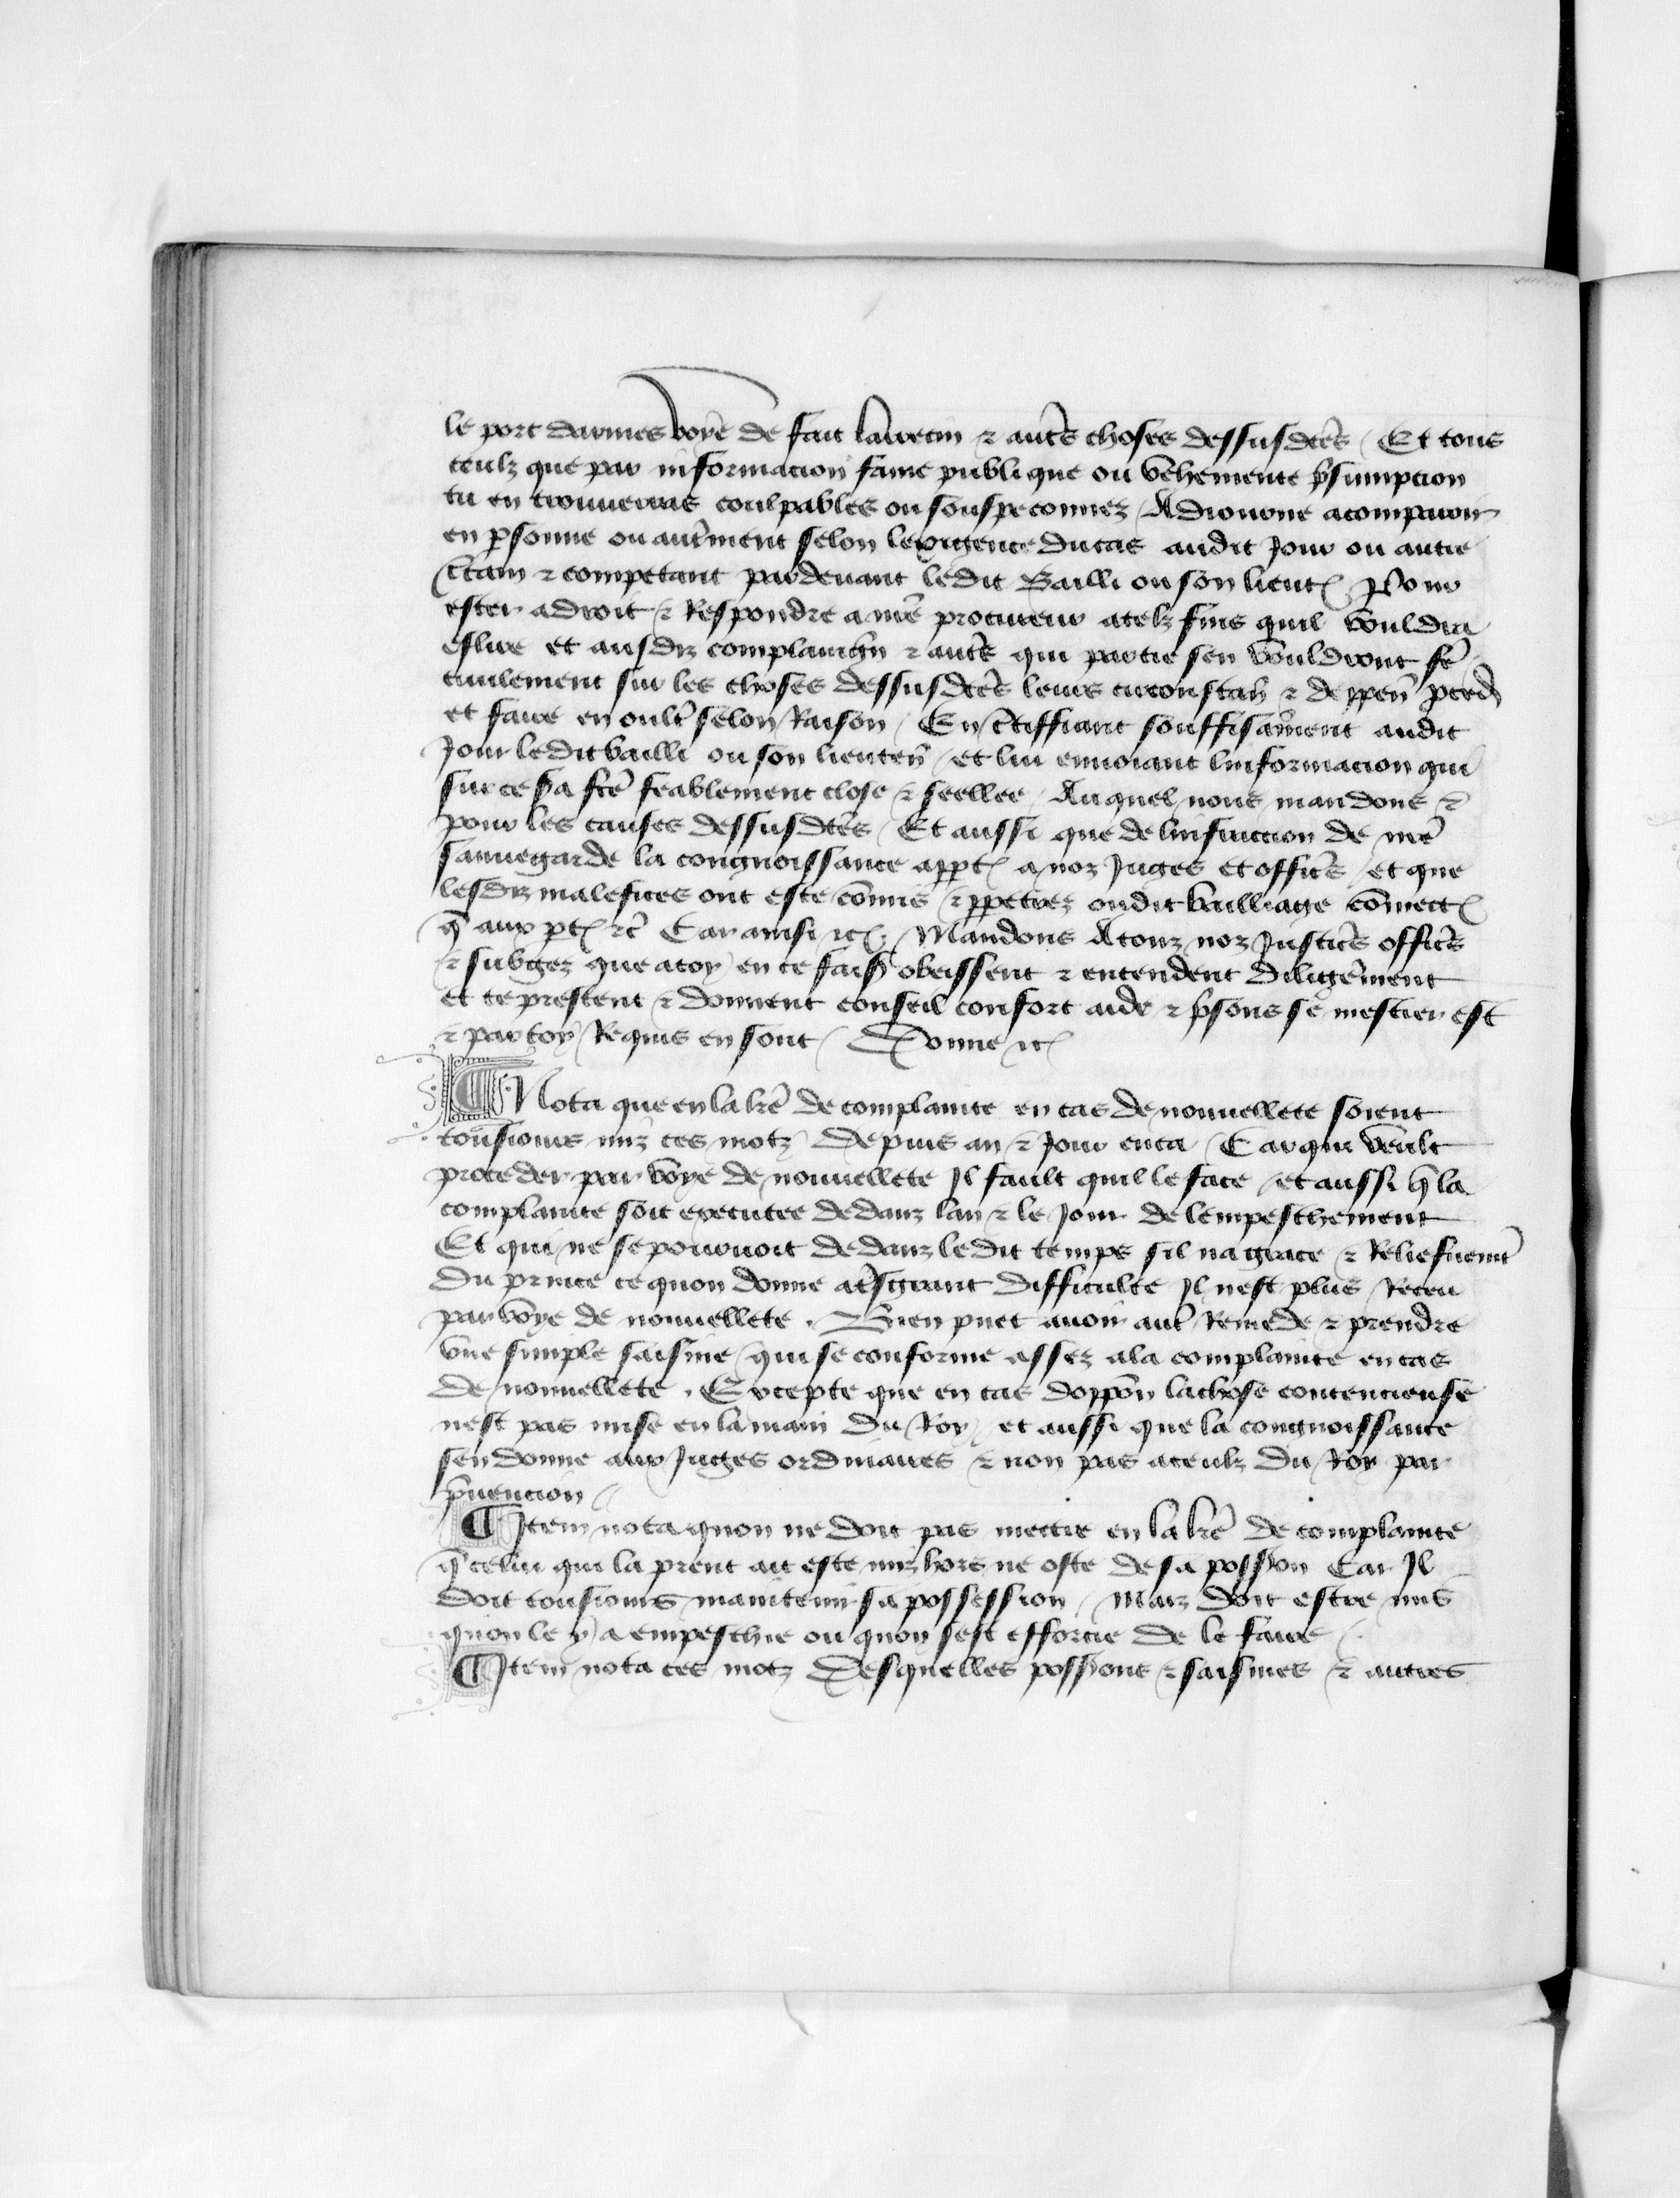 le port darmes voye de fait larrecin & autˀs choses dessusdcēs / Et tous
ceulz que par informacion fame publique ou vehemente pˀsumpcion
tu en trouueras coulpables ou souspeconnez / Adiourne acomparoir
en pˀsonne ou autˀment selon lexigence du cas audit Jour ou autre
cˀtain & competant pardeuant ledit Bailli ou son lieutˀ Pour
ester adroit & Respondre a nrē procureur atelz fins quil vouldra
eslire et ausdiz complaingn & autˀs qui partie sen vouldront fēˀ
ciuilement sur les choses dessusdcēs leurs circonstanˀ & deppenˀ pˀcedˀ
et faire en oultˀ selon Raison / En cˀtiffiant souffisāment audit
Jour ledit bailli ou son lieutenˀ / et lui enuoiant linformacion qui
sur ce sˀa fcē feablement close & seellee / Auquel nous mandons &
pour les causes dessusdcēs / Et aussi que de linfraction de nrē
sauuegarde la congnoissance apptˀ a noz Juges et officˀs / et que
lesdiz malefices ont este cōmis & ppetrez oudit bailliage cōmectˀ
q̄ aux ptˀ &c̄ Car ainsi &cˀ Mandons Atouz noz Justicˀs officˀs
& subgez que atoy en ce faisˀ obeissent & entendent diligēment
et te prestent & donnent conseil confort aide & pˀsons se mestier est
& par toy Requis en sont / Donne &cˀ
¶ Nota que en la lrē de complainte en cas de nouuellete soient
tousiours miz ces motz depuis an & Jour enca / Car qui veult
proceder par voye de nouuellete Il fault quil le face / et aussi q̄ la
complainte soit executee dedanz lan & le Jour de lempeschement
Et qui ne se pouruoit dedanz ledit temps sil na grace & Reliefuemtˀ
du prince ce quon donne atˀsgrant difficulte Il nest plus Receu
par voye de nouuellete . Bien puet auoir autˀ Remede & prendre
vne simple saisine / qui se conforme assez ala complainte en cas
de nouuellete . Excepte que en cas doppōn la chose contencieuse
nest pas mise en la main du Roy / et aussi que la congnoissance
sen donne aux Juges ordinaires & non pas aceulz du Roy par
pˀuencion /
¶ Item nota quon ne doit pas mectre en la lrē de complainte
q̄ celui qui la prent ait este miz hors ne oste de sa possˀion Car Il
doit tousiours maintenir sa possession / Maiz doit estre mis
quon le y a empeschie ou quon sest efforcie de le faire /
¶ Item nota ces motz Desquelles possˀions & saisines & autres